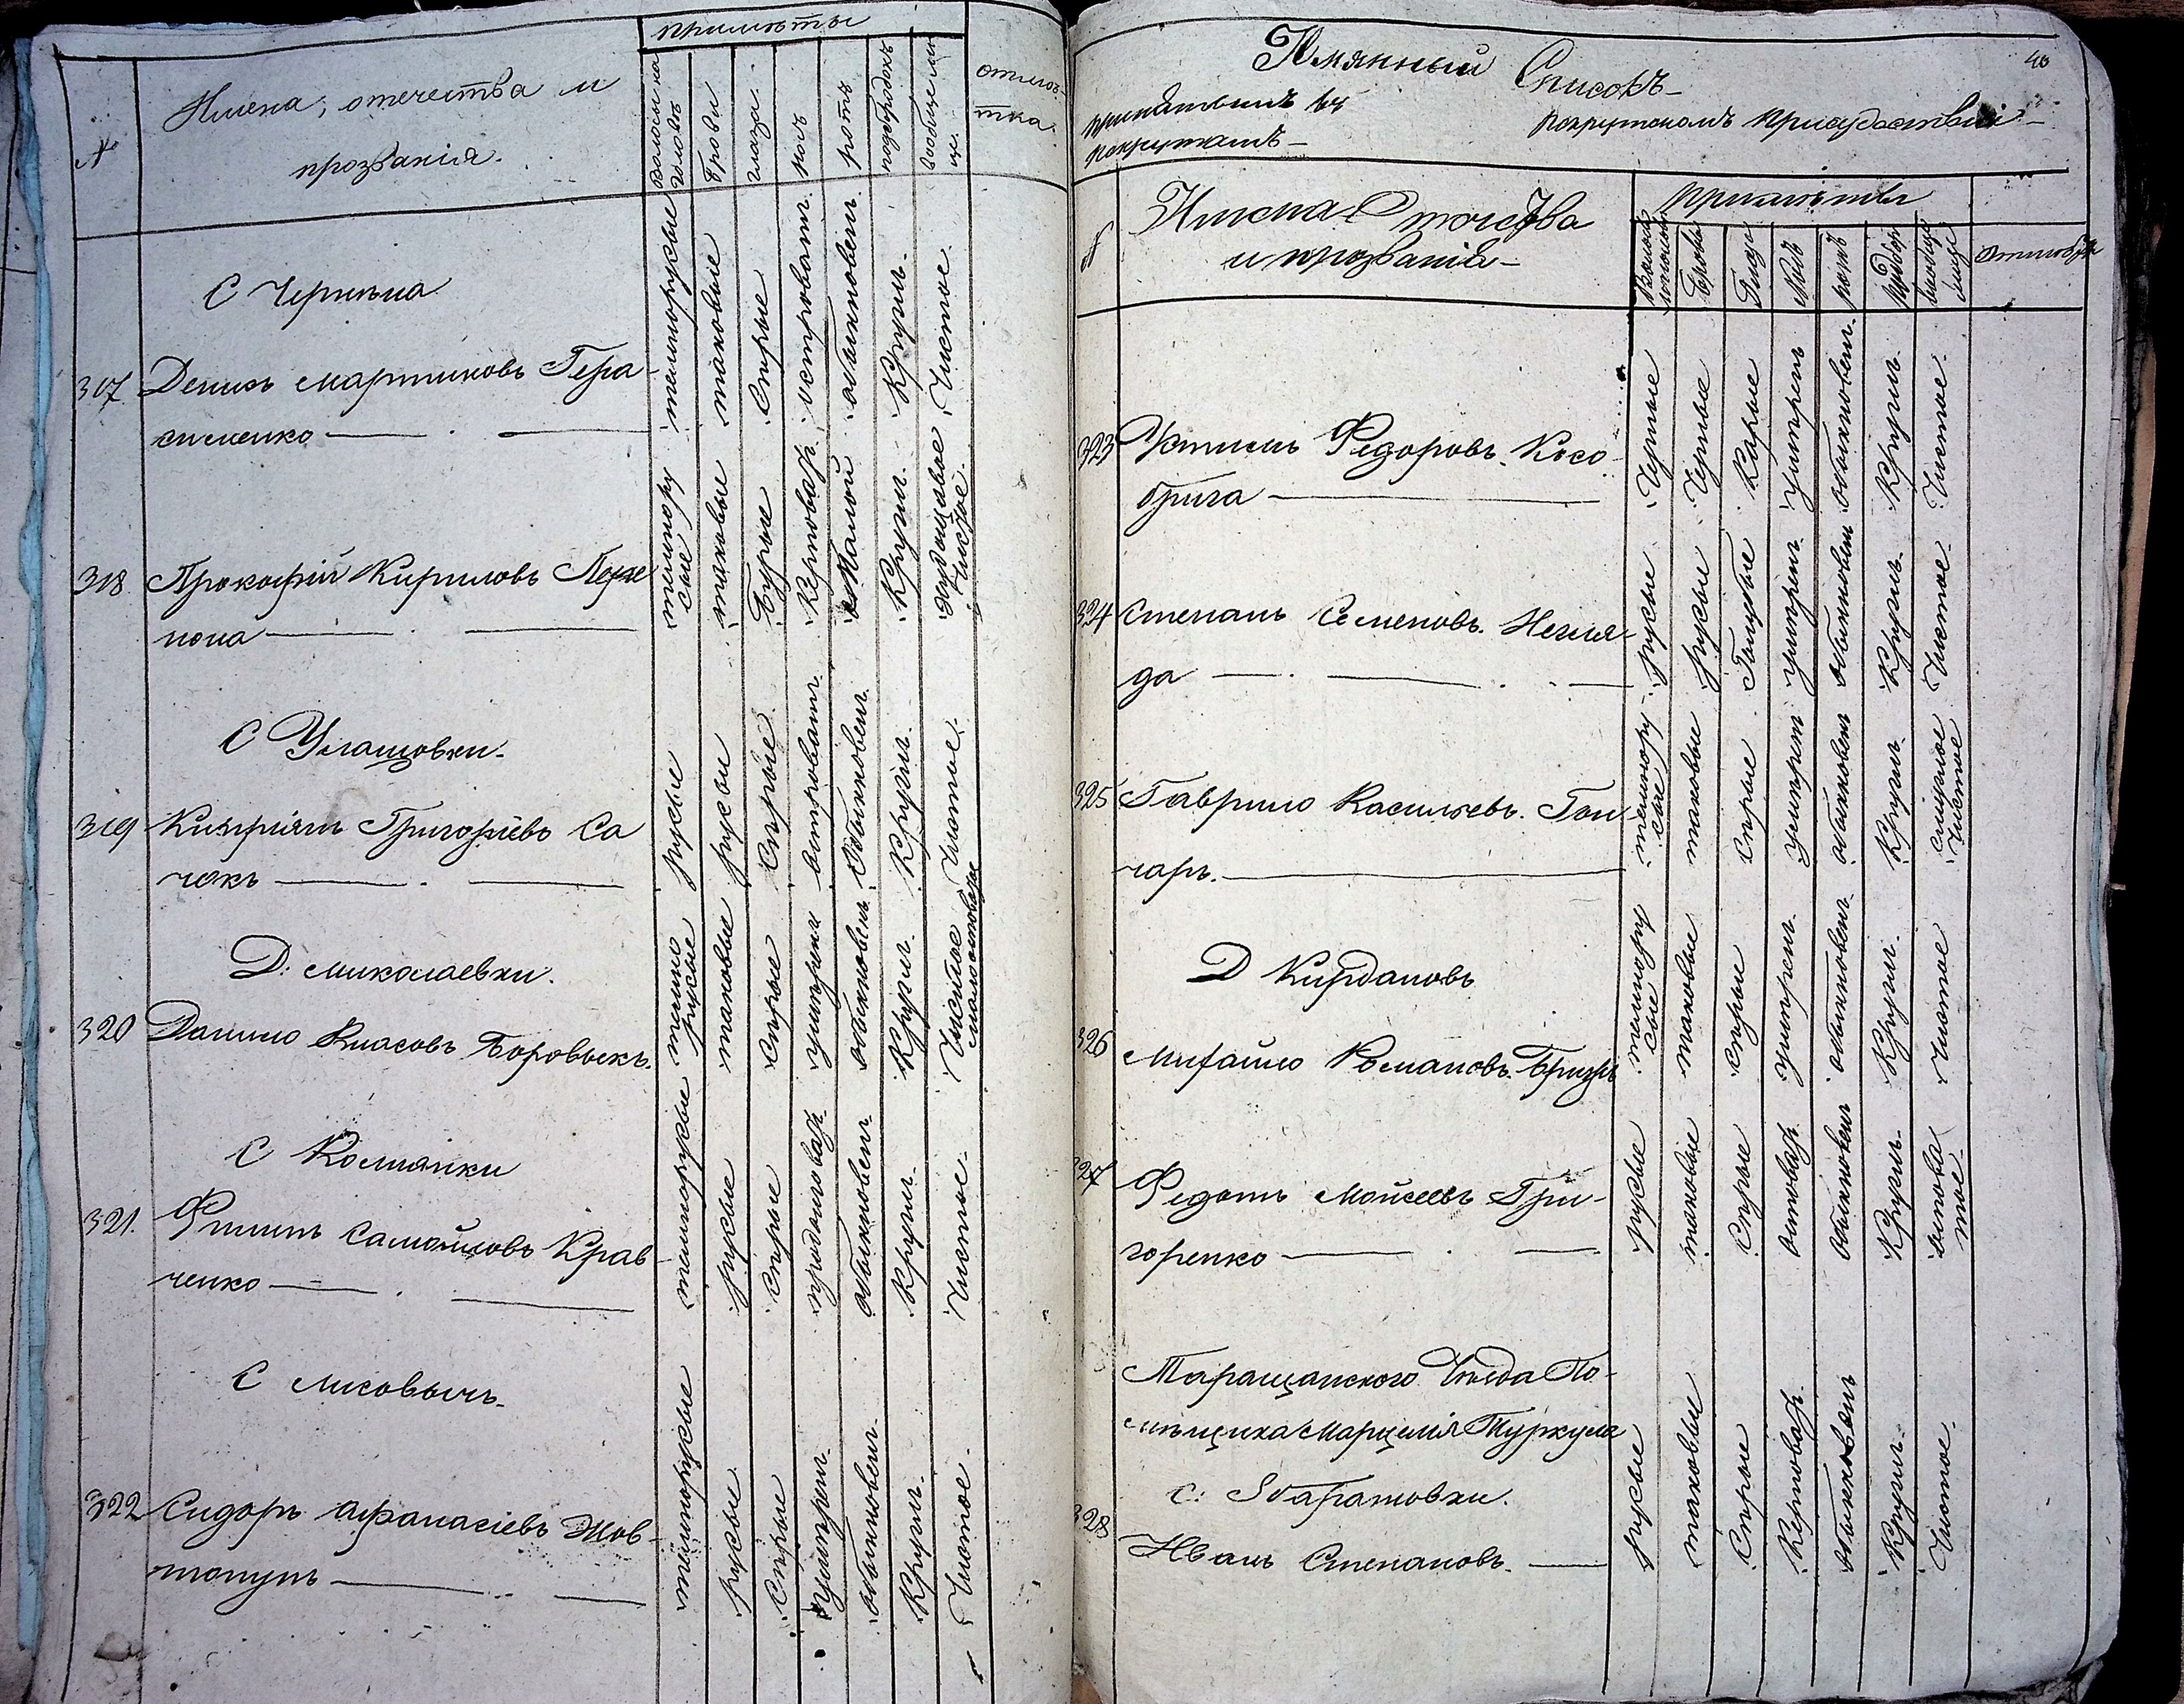 Примѣты
№
Имена, отечества и
прозванія.
Волосы на головѣ
брови
глаза
носъ
ротъ
подбородокъ
вообще лице
отмѣтка.
С Чернына
317 Денисъ Мартиновъ Гера-
сименко
темнорусые
таковые
Сѣрые
островат.
обыкновен.
Кругл.
Чистое
318 Прокофій Кириловъ
темнорусые
таковые
Бурые
Малой
Кругл.
Чистое
С Улашовки
319 Кипріянъ Григоріевъ Са
чокъ
русые
русые
Сѣрые
островат.
Обыкновен.
Кругл.
Чистое
Д: Миколаевки.
320 Данило Власовъ Боровыкъ.
темнорусые
таковые
Сѣрые
умѣрен
обыкновенъ
Кругл.
Чистое
С Колянки
321. Филипъ Самойловъ Крав-
ченко
темнорусые
русые
Сѣрые
продолговат.
обыкновен.
Кругл.
Чистое
С Лисовычъ
322 Сидоръ Афанасіевъ Жов-
топупъ
темнорусые
русые
Сѣрые
умѣрен.
обыкновен.
Кругл.
Чистое
40
Имянный Списокъ
принятымъ въ Рекрутскомъ Присудствіи
рекрутамъ
Примѣты
№
Имена Отечества
и прозванія
Брови
Глаза
Носъ
ротъ
323 Устимъ Федоровъ. Косо-
брига
Черные
Черные
Карые
Умѣрен
Обыкновен.
Кругл.
Чистое
324 Степанъ Семеновъ. Негля-
да
русые
русые
Голубые
умѣрен.
обыкновен
Кругл.
Чистое
325 Гаврило Василевъ. Гон
чаръ.
темнорусые
таковые
Сѣрые
Умѣрен
обыкновен
Кругл.
Чистое
Д Кирдановъ
326 Михайло Романовъ.
темнорусые
таковые
Сѣрые
умѣрен.
обыкновен.
Кругл.
Чистое
327 Федотъ Мойсеевъ Гри-
горенко
русые
таковые
Сѣрые
обыкновен
Кругл.
Таращанского Уѣзда По-
мѣщика Марцелія Туркула
С: Збаратовки.
328 Иванъ Степановъ.
русые
таковые
Сѣрые
Керповат.
обыкновенъ
Кругл.
Чистое.